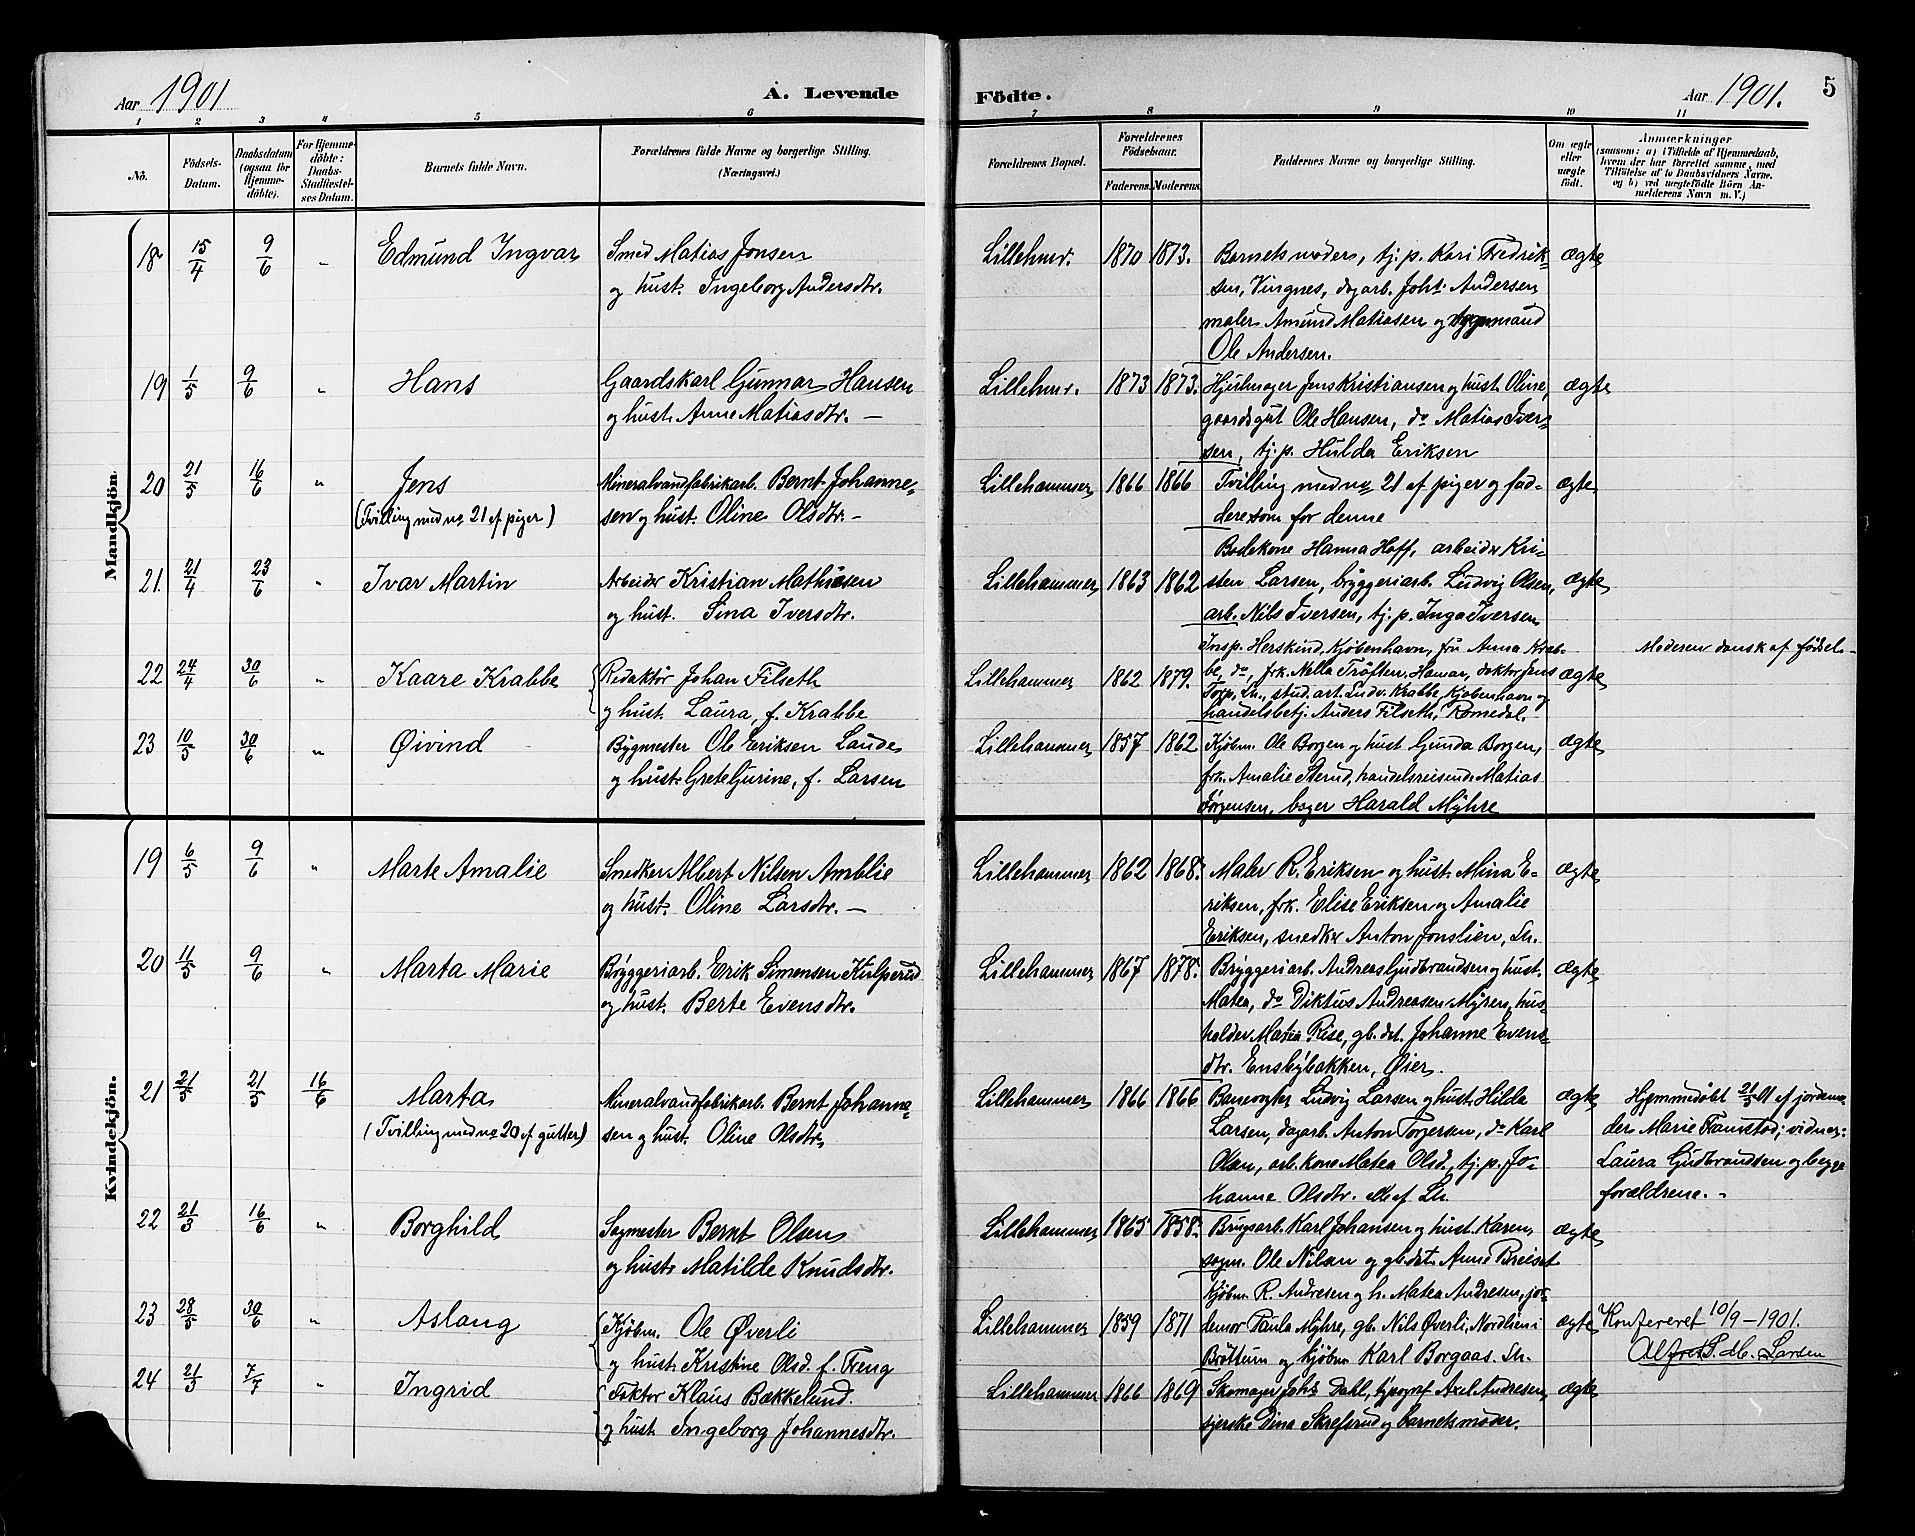 Aar 1901 A. Levende Födte. Aar 1901. 5
1 2 3 4 5 6 7 8 9 10 11
No.
Födsels-
Datum.
Daabsdatum
(ogsaa for
Hjemme-
döbte).
For Hjemme-
döbte:
Daabs-
Stadfæstel-
ses Datum.
Barnets fulde Navn.
Forældrenes fulde Navne og borgerlige Stilling.
(Næringsvei.)
Forældrenes Bopæl.
Forældrenes
Födselsaar.
Faderens. Moderens.
Faddernes Navne og borgerlige Stilling.
Om ægte
eller
uægte
födt.
Anmærkninger
(saasom: a) i Tilfælde af Hjemmedaab,
hvem der har forrettet samme, med
Tilföielse af to Daabsvidners Navne.
og b) ved uægtefödte Börn An-
melderens Navn m. V.)
Mandkjön
18 15/4 9/6 „ Edmund Ingvar Smed Matias Jonsen Lillehmr. 1870 1873. Barnets moder, tj.p. Kari Fredrik- ægte
og hust. Ingeborg Andersdtr. sen, Vingnes, dagarb. Johs. Andersen
maler Amund Matiasen og mand
Ole Andersen.
19 1/5 9/6 „ Hans Gaardskarl Gunnar Hansen Lillehmr. 1873 1873. Hjulmager Jens Kristiansen og hust. Oline, ægte
og hust. Anne Matiasdtr. — gaardsgut Ole Hansen, do Matias Iver-
sen, tj.p. Hulda Eriksen
20 21/5 16/6 „ Jens Mineralvandfabrikarb. Bernt Johanne- Lillehammer 1866 1866 Tvilling med no 21 af piger og fad- ægte
(Tvilling med no 21 af piger) sen og hust. Oline Olsdtr. — dere som for denne
Badekone Hanna Hoff, arbeider Kri-
21. 21/4 23/6 „ Ivar Martin Arbeider Kristian Mathiesen Lillehammer 1863 1862 sten Larsen, bryggeriarb. Ludvig Olsen, ægte
og hust. Sina Iversdtr. arb. Nils Iversen, tj.p. Inga Iversen
Insp. Herskind, Kjøbenhavn, fru Anna Krab- Moderen dansk af fødsel. -
22 24/4 30/6 „ Kaare Krabbe Redaktør Johan Filseth Lillehammer 1862 1879. be, do, frk. Nella Trøften, Hamar, doktor Jens ægte
Torp, Lh., stud. art. Ludv. Krabbe, Kjøbenhavn og
og hust. Laura, f. Krabbe handelsbetj. Anders Filseth, Romedal.
23 10/5 30/6 „ Øivind Bygmester Ole Eriksen Lande Lillehammer 1857 1862 Kjøbm. Ole Borgen og hust. Gunda Borgen, ægte
og hust. Grete Gurine, f. Larsen frk. Amalie Sterud, handelsreisende Matias
Jørgensen, bager Harald Myhre
Kvindekjön.
19 6/5 9/6 „ Marte Amalie Snedker Albert Nilsen Amblie Lillehammer 1862 1868. Maler R. Eriksen og hust. Mina E- ægte
og hust. Oline Larsdtr. — riksen, frk. Elise Eriksen og Amalie
Eriksen, snedker Anton Jonslien, Lh.
20 11/5 9/6 „ Marta Marie Bryggeriarb. Erik Simensen Lillehammer 1867 1878. Bryggeriarb. Andreas Gudbrandsen og hust. ægte
og hust. Berte Evensdtr. Matea, do Diktus Andreasen Myren, hus-
holder Matea Rise, gb.dt. Johanne Evens-
dtr. Ensbybakken, Øier.
21 21/5 21/5 16/6 Marta Mineralvandfabrikarb. Bernt Johanne- Lillehammer 1866 1866 Banevogter Ludvig Larsen og hust. Hilda ægte Hjemmedøbt 21/5 01 af jordemo-
(Tvilling med no 20 af gutter) sen og hust. Oline Olsdtr. Larsen, dagarb. Anton Torgersen, do Karl der Marie Framstad; vidner:
Olsen, arb. kone Matea Olsd., tj.p. Jo- Laura Gudbrandsen og begge
hanne Olsdtr. alle af Lh. forældrene. -
22 21/3 16/6 „ Borghild Sagmester Bernt Olsen Lillehammer 1865 1858. Brugsarb. Karl Johansen og hust. Karen, ægte
og hust. Matilde Knudsdtr. sagm. Ole Nilsen og gb.dt. Anne Breiset
Kjøbm. R. Andresen og h. Matea Andresen, jor-
23 28/5 30/6 „ Aslaug Kjøbm. Ole Øverli Lillehammer 1859 1871 demor Paula Myhre, gb. Nils Øverli, Nordlien i ægte Konfereret 10/9 - 1901.
og hust. Kristine Olsd. f. Freng Brøttum og kjøbm Karl Borgaas. Lh. Alfred S. M. Larsen
24 21/3 7/7 „ Ingrid Faktor Klaus Bækkelund. Lillehammer 1866 1869 Skomager Johs Dahl, typograf Axel Andresen, ægte
og hust. Ingeborg Johannesdtr. sjerske Dina Skrefsrud og barnets moder.